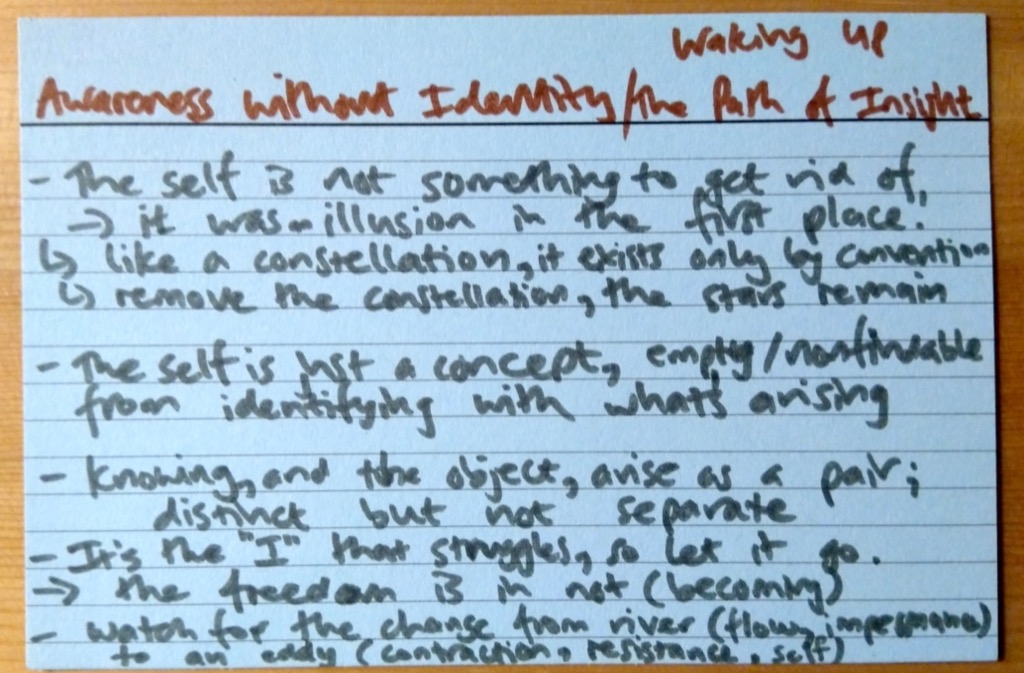 Waking Up
Awareness without Identity/the Path of Insight
- The self is not something to get rid of,
→ it was an illusion in the first place.
↳ like a constellation, it exists only by convention
↳ remove the constellation, the stars remain
- The self is just a concept, empty/nonfindable
from identifying with what's arising
- Knowing, and the object, arise as a pair;
distinct but not separate
- It's the "I" that struggles, so let it go.
→ the freedom is in not (becoming)
- watch for the change from river (flow, impermanence)
to an eddy (contraction, resistance, self)